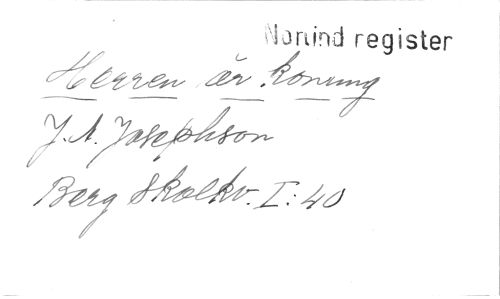 Nortind register
Herren är konung
J. A. Josephson
Berg Skolkv. I: 40